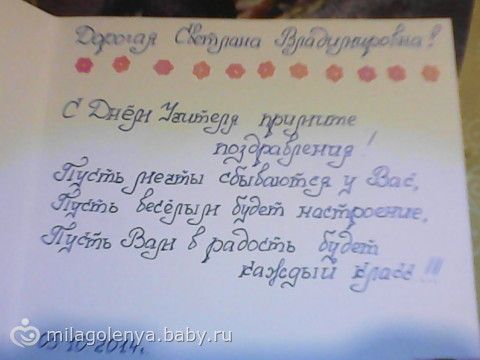 Дорогая Светлана Владимировна!
С Днём Учителя примите
поздравления!
Пусть мечты сбываются у Вас,
Пусть весёлым будет настроение,
Пусть Вам в радость будет
каждый класс!!!
05-10-2014г.
milagolenya.baby.ru